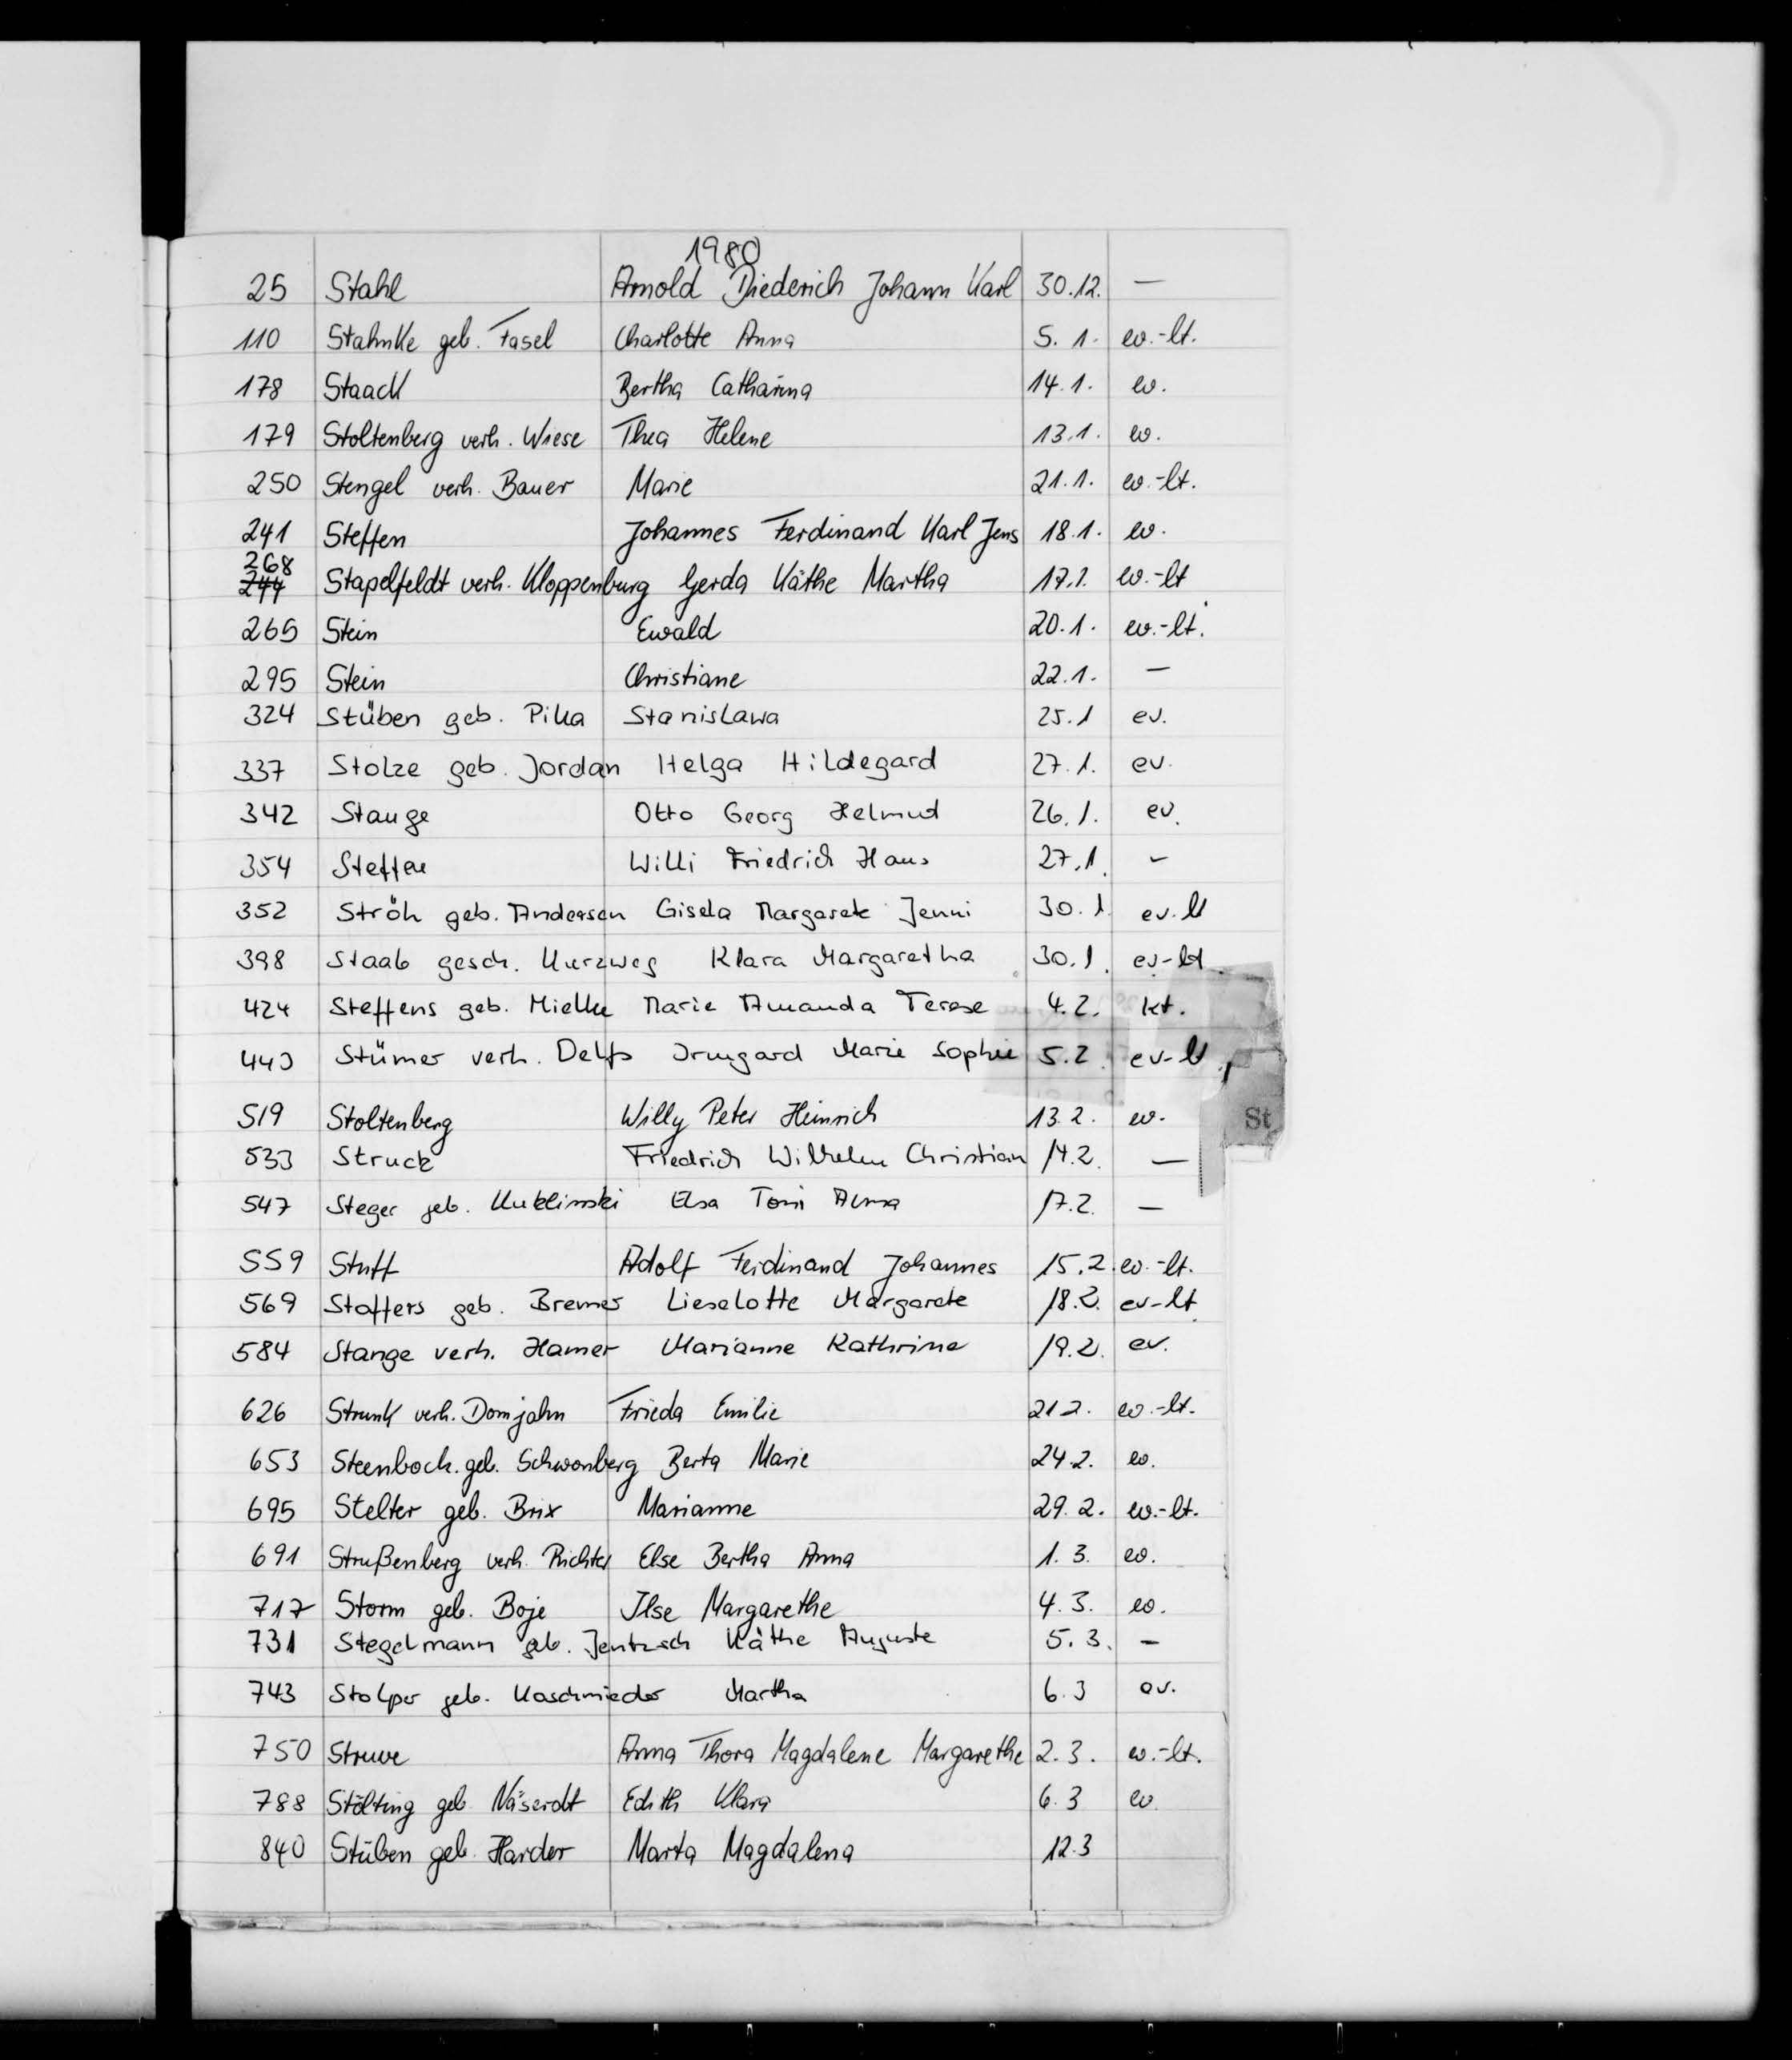 1980
25 Stahl Arnold Diederich Johann Karl 30.12. —
110 Stahnke geb. Fasel Charlotte Anna 5.1. ev.-lt.
178 Staack Bertha Catharina 14.1. ev.
179 Stoltenberg verh. Wiese Thea Helene 13.1. ev.
250 Stengel verh. Bauer Marie 21.1. ev.-lt.
241 Steffen Johannes Ferdinand Karl Jens 18.1. ev.
268
244 Stapelfeldt verh. Kloppenburg Gerda Käthe Martha 17.1. ev.-lt
265 Stein Ewald 20.1. ev.-lt.
295 Stein Christiane 22.1. —
324 Stüben geb. Pika Stanislawa 25.1 ev.
337 Stolze geb. Jordan Helga Hildegard 27.1. ev.
342 Stange Otto Georg Helmud 26.1. ev.
354 Steffen Willi Friedrich Hans 27.1. –
352 Ströh geb. Andersen Gisela Margarete Jenni 30.1. ev.lt
398 Staab gesch. Kurzweg Klara Margaretha 30.1. ev-lt
424 Steffens geb. Mielke Marie Amanda Terese 4.2. kt.
443 Stümer verh. Delfs Irmgard Marie Sophie 5.2. ev-lt.
519 Stoltenberg Willy Peter Heinrich 13.2. ev. St
533 Struck Friedrich Wilhelm Christian 14.2. —
547 Steger geb. Kuklinski Elsa Toni Anna 17.2. —
559 Stuff Adolf Ferdinand Johannes 15.2. ev.-lt.
569 Stoffers geb. Bremer Lieselotte Margarete 18.2. ev-lt.
584 Stange verh. Hamer Marianne Kathrine 19.2. ev.
626 Strunk verh. Domjahn Frieda Emilie 21.2. ev.-lt.
653 Steenbock geb. Schwonberg Berta Marie 24.2. ev.
695 Stelter geb. Brix Marianne 29.2. ev.-lt.
691 Strußenberg verh. Richter Else Bertha Anna 1.3. ev.
717 Storm geb. Boje Ilse Margarethe 4.3. ev.
731 Stegelmann geb. Jentzsch Käthe Auguste 5.3. –
743 Stolper geb. Kaschmieder Martha 6.3 ev.
750 Struve Anna Thora Magdalene Margarethe 2.3. ev.-lt.
788 Stölting geb. Näserdt Edith Klara 6.3 ev.
840 Stüben geb. Harder Marta Magdalena 12.3